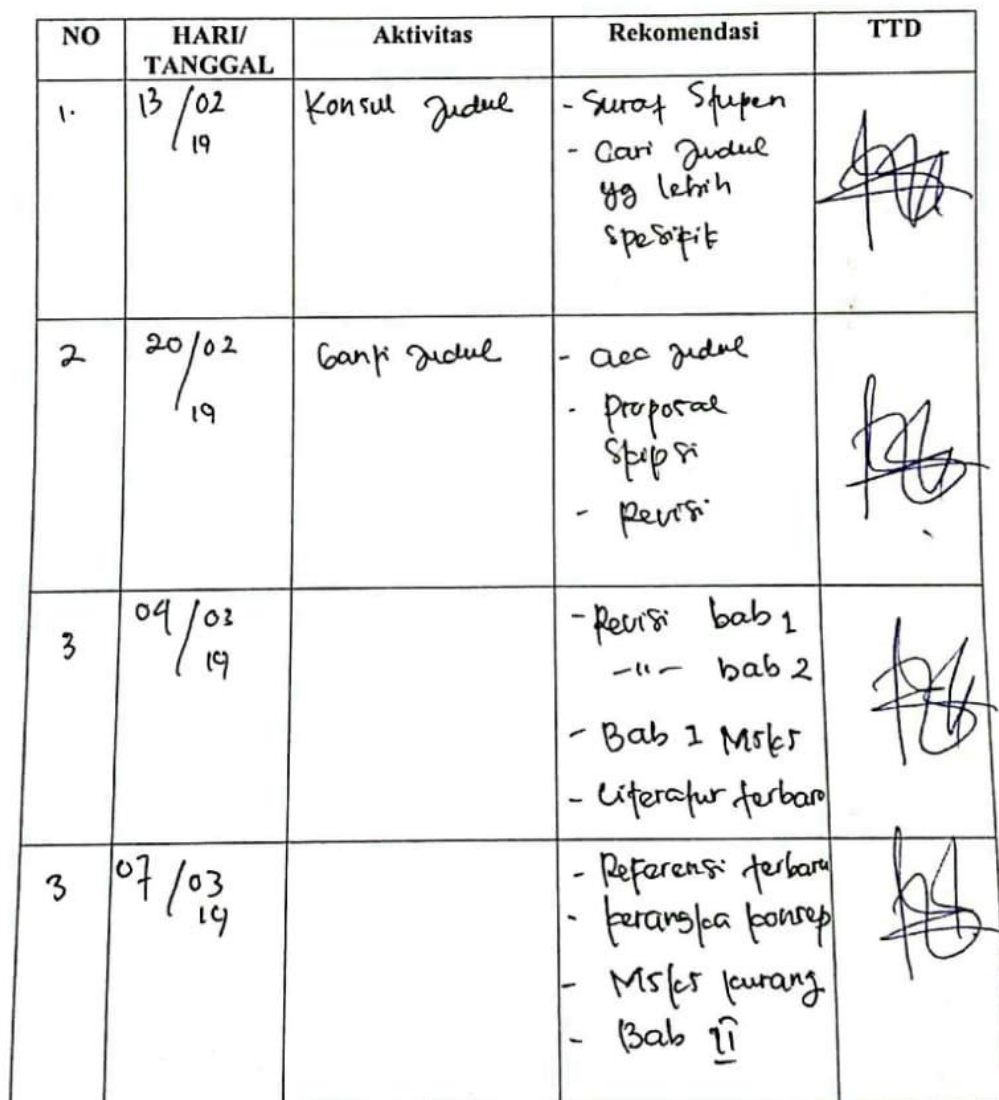 NO HARI/ Aktivitas Rekomendasi TTD
TANGGAL
1. 13/02 Konsul Judul - Surat Stupen
19 - Cari Judul
yg lebih
spesifik
2 20/02 Ganti Judul - acc Judul
19 - Proposal
Skripsi
- Revisi
3 04/03 - Revisi bab 1
19 -"- bab 2
- Bab 1 MSKS
- Literatur terbaru
3 07/03 - Referensi terbaru
19 - kerangka konsep
- MSKS kurang
- Bab II